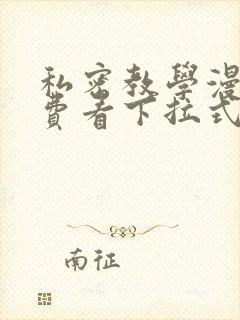 私密教學漫
費看下拉式
南征